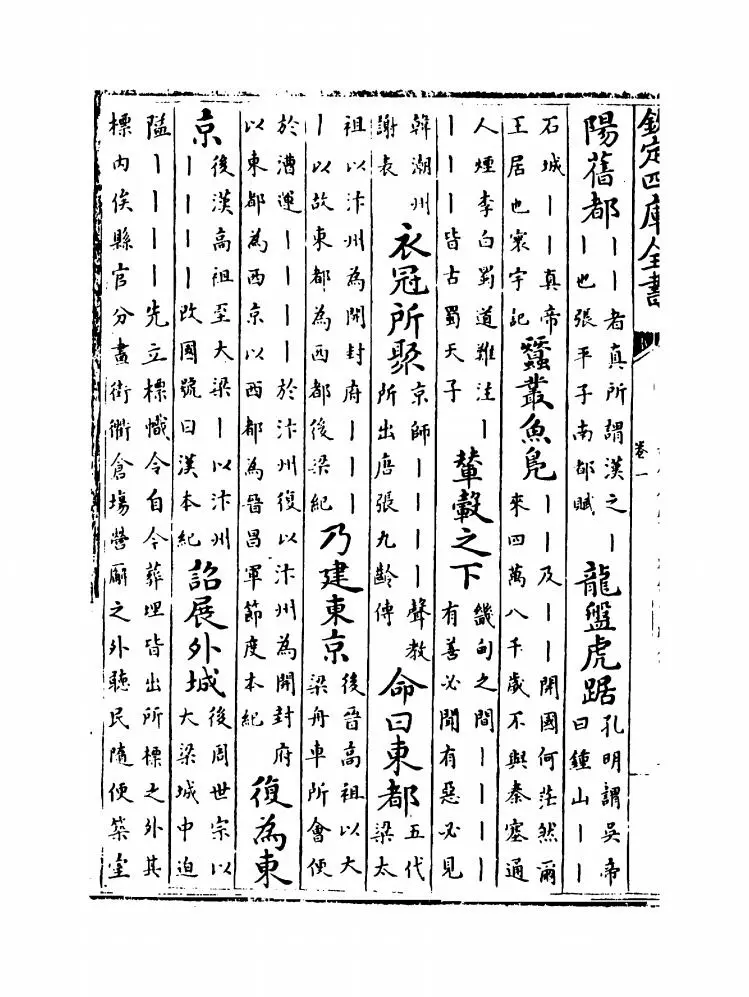 欽定四庫全書
卷一
陽舊都
丨丨者真所謂漢之丨
丨也張平子南都賦
龍盤虎踞
孔明謂吳帝
曰鍾山丨丨
石城丨丨真帝
王居也寰宇記
蠶叢魚鳧
丨丨及丨丨開國何茫然爾
來四萬八千歲不與秦塞通
人煙李白蜀道難注丨
丨丨丨皆古蜀天子
輦轂之下
畿甸之間丨丨丨丨
有善必聞有惡必見
韓潮州
謝表
衣冠所聚
京師丨丨丨丨聲教
所出唐張九齡傳
命曰東都
五代
梁太
祖以汴州為開封府丨丨丨
丨以故東都為西都後梁紀
乃建東京
後晉高祖以大
梁舟車所會便
於漕運丨丨丨丨於汴州復以汴州為開封府
以東都為西京以西都為晉昌軍節度本紀
復為東
京
後漢高祖至大梁丨以汴州
丨丨丨丨改國號曰漢本紀
詔展外城
後周世宗以
大梁城中迫
隘丨丨丨丨先立標幟令自今葬埋皆出所標之外其
標內俟縣官分畫街衢倉場營廨之外聽民隨便築室